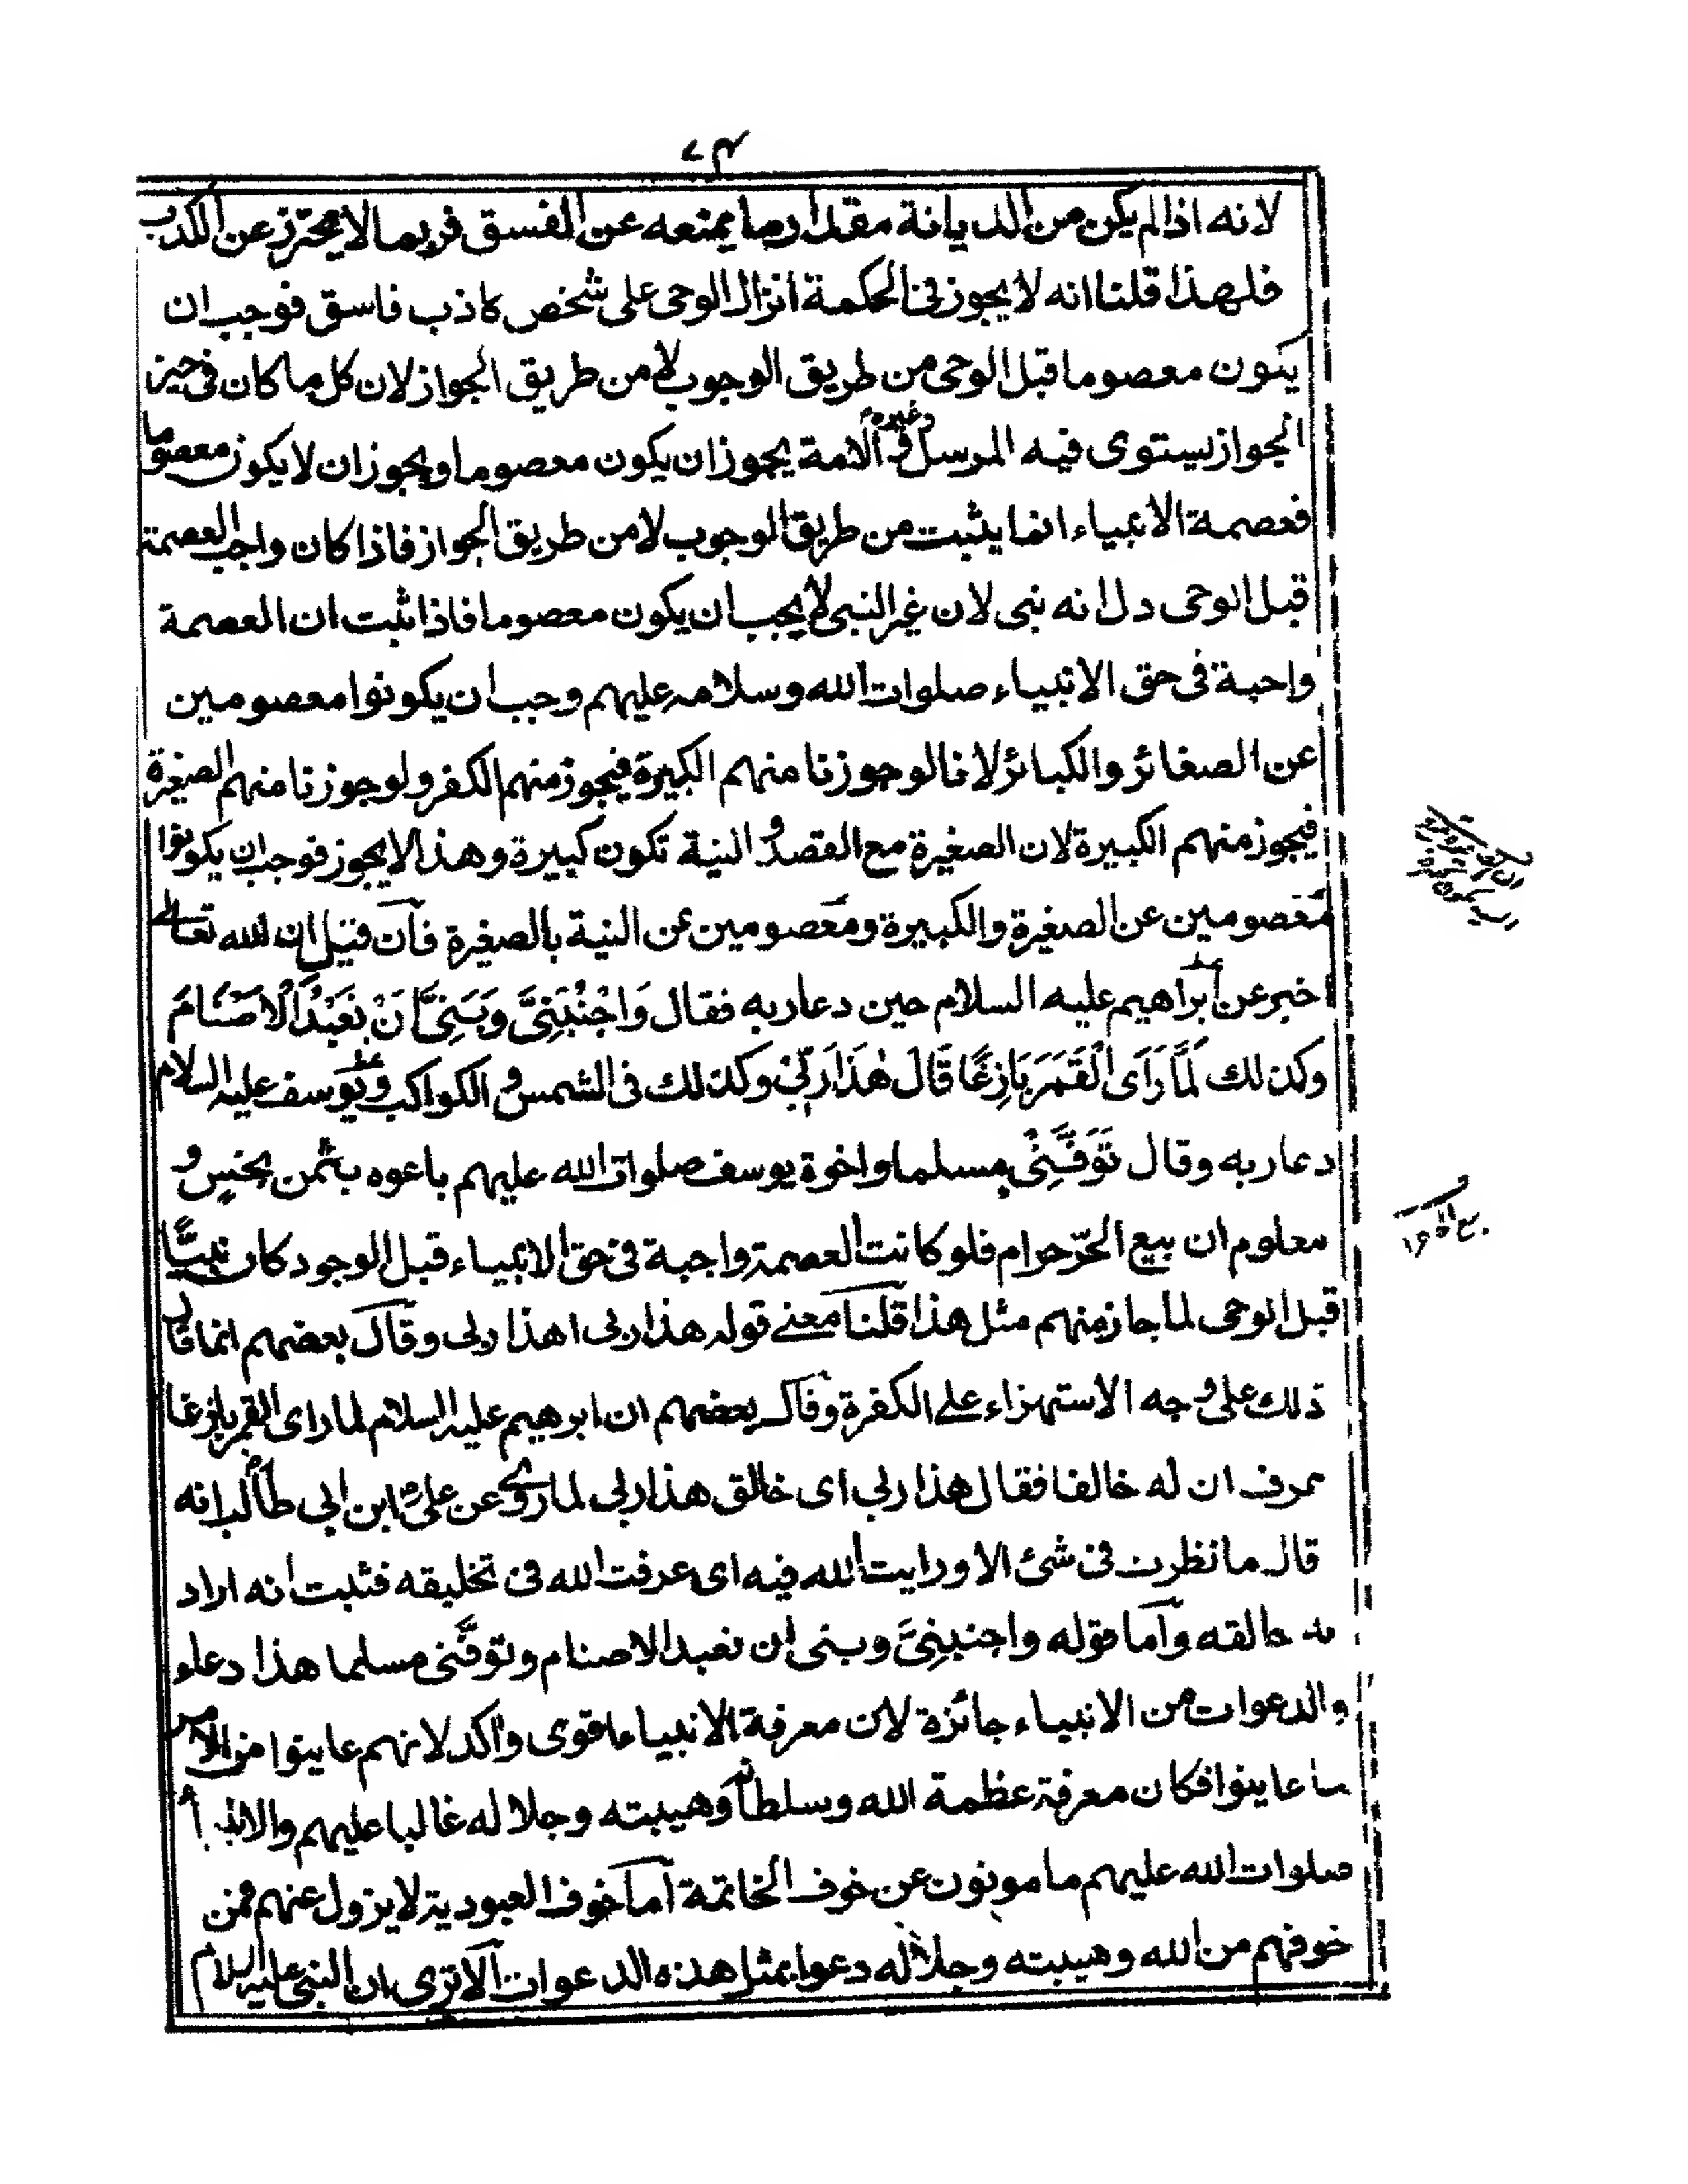 لانه اذا لم يكن من الديانة مقدار ما يمنعه عن الفسق فربما لا يحترز عن الكذب
فلهذا قلنا انه لا يجوز فى الحكمة انزال الوحى على شخص كاذب فاسق فوجب ان
يكون معصوما قبل الوحى من طريق الوجوب لا من طريق الجواز لان كل ما كان فى حيز
الجواز يستوى فيه المرسل وغيره فى الامة يجوز ان يكون معصوما ويجوز ان لا يكون معصوما
فعصمة الانبياء انما يثبت من طريق الوجوب لا من طريق الجواز فاذا كان واجب العصمة
قبل الوحى دل انه نبى لان غير النبى لا يجب ان يكون معصوما فاذا ثبت ان العصمة
واجبة فى حق الانبياء صلوات الله وسلامه عليهم وجب ان يكونوا معصومين
عن الصغائر والكبائر لانا لو جوزنا منهم الكبيرة فيجوز منهم الكفر ولو جوزنا منهم الصغيرة
فيجوز منهم الكبيرة لان الصغيرة مع القصد و النية تكون كبيرة وهذا لا يجوز فوجب ان يكونوا
معصومين عن الصغيرة والكبيرة ومعصومين عن النية بالصغيرة فان قيل ان الله تعالى
اخبر عن ابراهيم عليه السلام حين دعا ربه فقال وَاجْنُبْنِىْ وَبَنِىَّ اَنْ نَعْبُدَ الْاَصْنَامَ
وكذلك لَمَّا رَاَى الْقَمَرَ بَازِغًا قَالَ هٰذَا رَبِّىْ وكذلك فى الشمس و الكواكب ويوسف عليه السلام
دعا ربه وقال تَوَفَّنِىْ مسلما واخوة يوسف صلوات الله عليهم باعوه بثمن بخسٍ و
معلوم ان بيع الحرّ حرام فلو كانت العصمة واجبة فى حق الانبياء قبل الوجود كان نبيًّا
قبل الوحى لما جاز منهم مثل هذا قلنا معنے قوله هذا ربى اهذا ربى وقال بعضهم انما قال
ذلك على وجه الاستهزاء على الكفرة وقال بعضهم ان ابرهيم عليه السلام لما راى القمر بازغا
عرف ان له خالقا فقال هذا ربى اى خالق هذا ربى لما روى عن على ابن ابى طالب انه
قال ما نظرت فى شئ الا ورايت الله فيه اى عرفت الله فى تخليقه فثبت انه اراد
به خالقه واما قوله واجنبنِىْ وبنى ان نعبد الاصنام وتوفَّنى مسلما هذا دعاء
والدعوات من الانبياء جائزة لان معرفة الانبياء اقوى واكد لانهم عاينوا من الامر
ما عاينوا فكان معرفة عظمة الله وسلطانه وهيبته وجلاله غالبا عليهم والانبياء
صلوات الله عليهم مامونون عن خوف الخاتمة اما خوف العبودية لا يزول عنهم فمن
خوفهم من الله وهيبته وجلاله دعوا بمثل هذه الدعوات الا ترى ان النبى عليه السلام